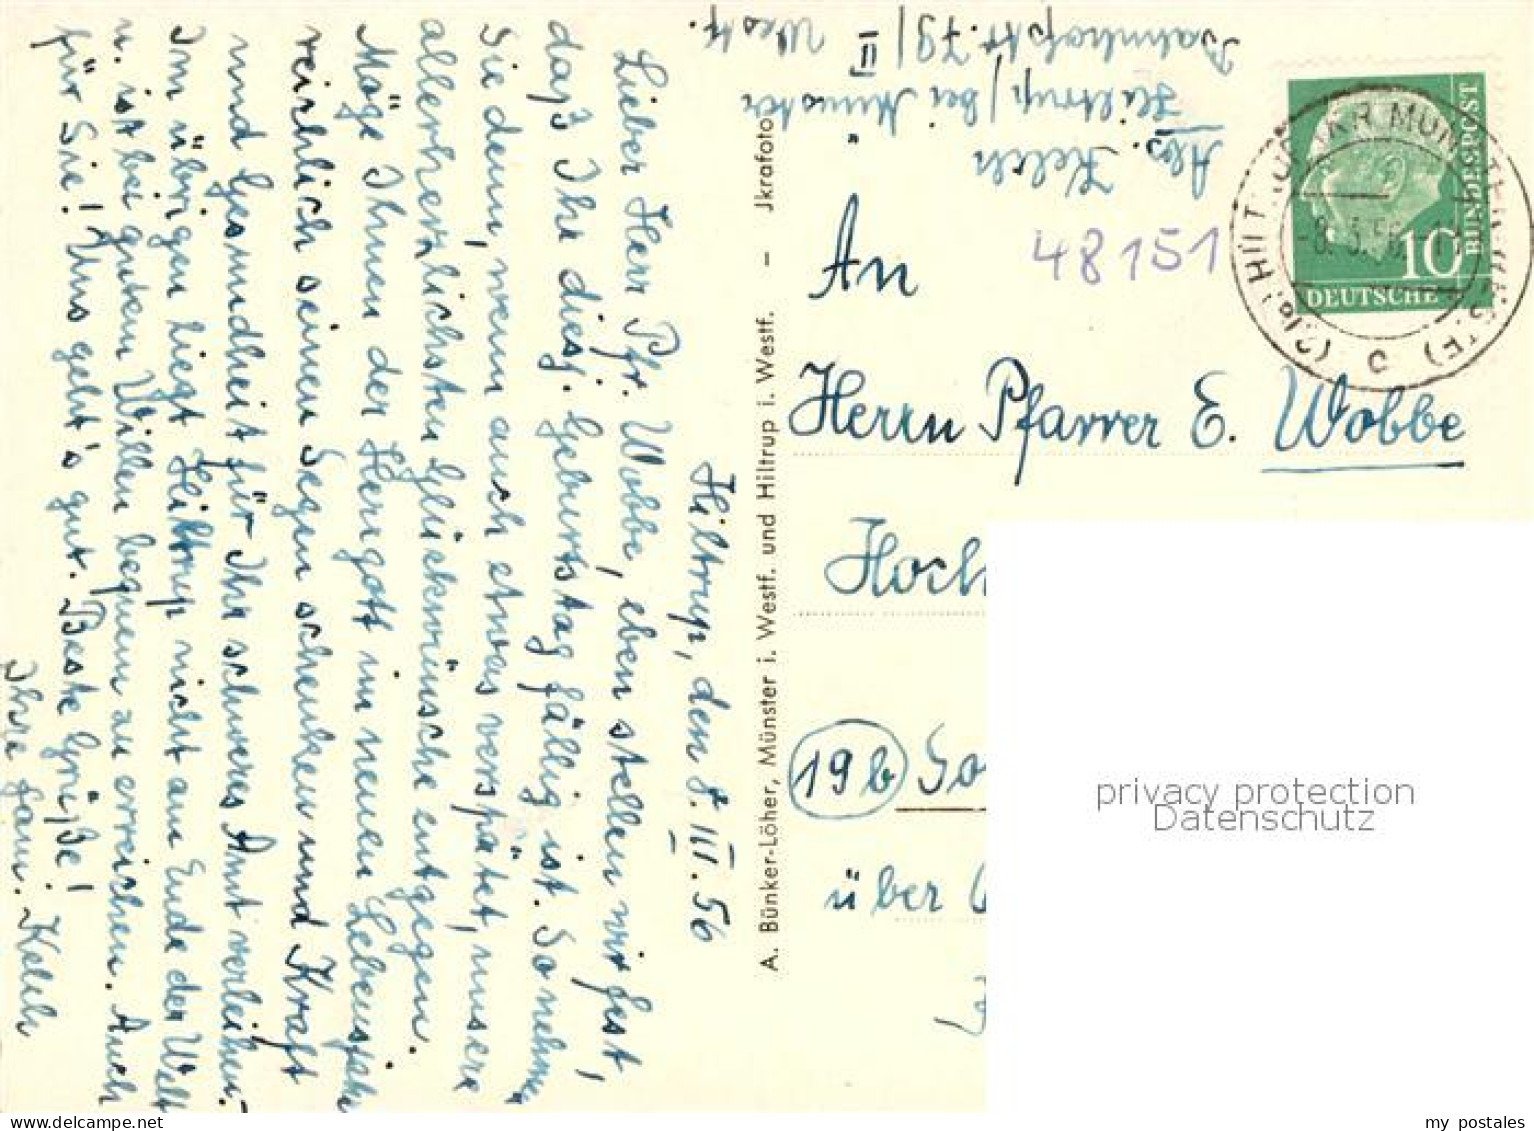 Hiltrup, den 8. III. 56
Lieber Herr Pfr. Wobbe, eben stellen wir fest,
daß Ihr diesj. Geburtstag fällig ist. So nehmen
Sie denn, wenn auch etwas verspätet, unsere
allerherzlichsten Glückwünsche entgegen.
Möge Ihnen der Herrgott im neuen Lebensjahr
reichlich seinen Segen schenken und Kraft
und Gesundheit für Ihr schweres Amt verleihen.
Im übrigen liegt Hiltrup nicht am Ende der Welt
u. ist bei gutem Willen bequem zu erreichen. Auch
für Sie! Uns geht's gut. Beste Grüße!
Ihre Fam. Kelch
A. Bünker-Löher, Münster i. Westf. und Hiltrup i. Westf. — Jkrafoto
Abs. Kelch
Hiltrup / bei Münster
Bahnhofstr. 79 / II Westf.
48151
DEUTSCHE
BUNDESPOST
10
An
Herrn Pfarrer E. Wobbe
Hoch
19b
über
privacy protection
Datenschutz
my postales